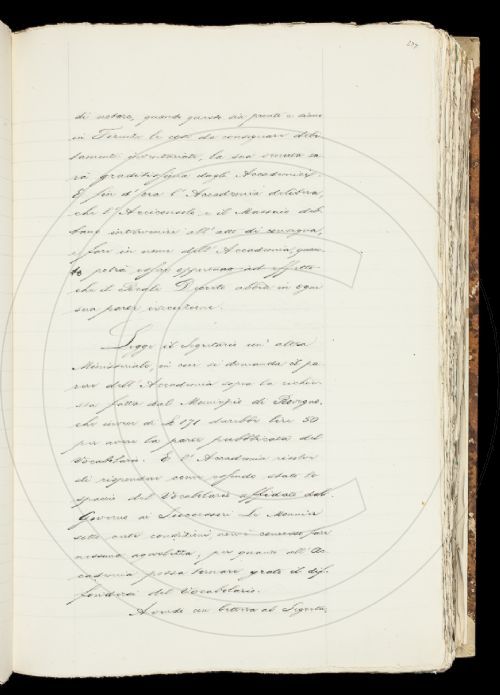 237
di notare, quando questo sia pronto e sieno
in Firenze le cose da consegnare debi-
tamente inventariate, la sua venuta sa-
rà graditissima dagli Accademici.
E fin d'ora l'Accademia delibera,
che l'Arciconsolo e il Massaio deb-
bano intervenire all'atto di consegna,
e fare in nome dell'Accademia quan-
to potrà essere opportuno ad effetto
che il Reale Decreto abbia in ogni
sua parte esecuzione.
Legge il Segretario un'altra
Ministeriale, in cui si domanda il pa-
rere dell'Accademia sopra la richie-
sta fatta dal Municipio di Rovigno,
che invece di L. 171 darebbe lire 50
per avere la parte pubblicata del
Vocabolario. E l'Accademia risolve
di rispondere come essendo stato lo
spaccio del Vocabolario affidato dal
Governo ai Successori Le Monnier
sotto certe condizioni, non è concesso fare
nessuna agevolezza, per quanto all'Ac-
cademia possa tornare grato il dif-
fondersi del Vocabolario.
Avendo un lettera al Segreta-